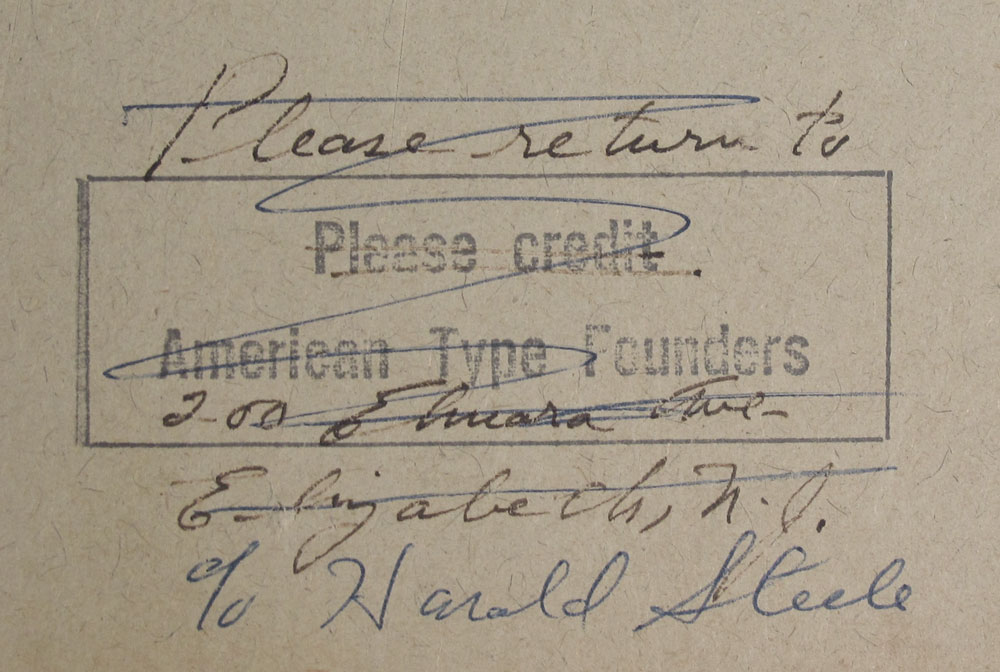 Please return to
Please credit
American Type Founders
200 Elmora Ave
Elizabeth, N.J.
c/o Harald Steele